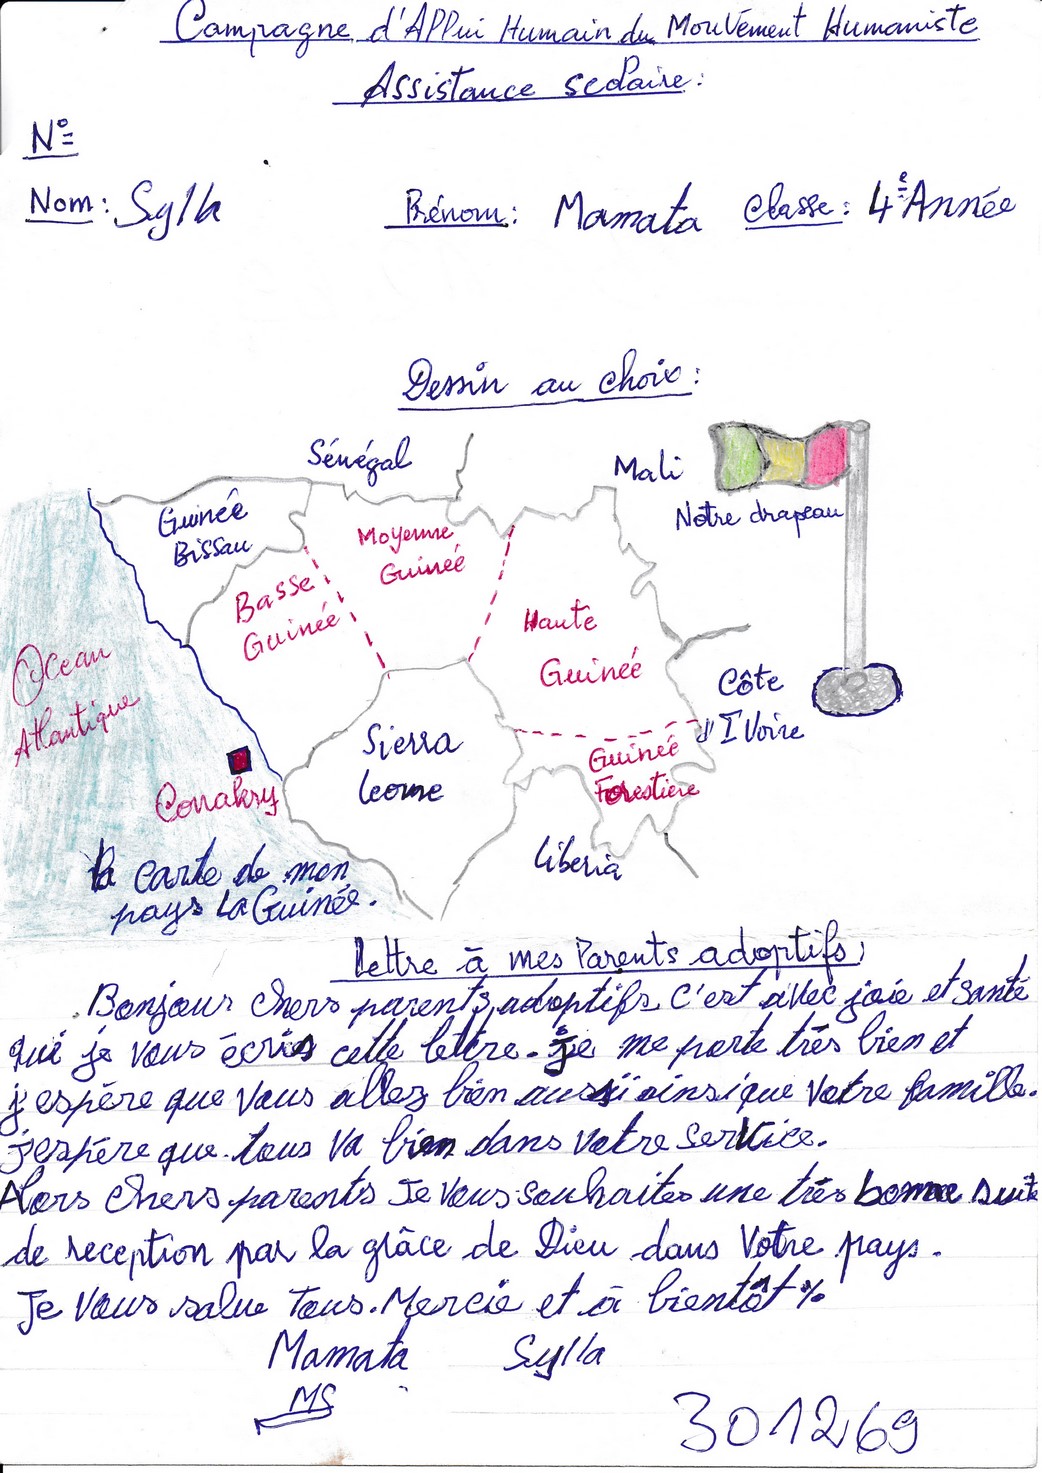 Campagne d'Appui Humain du Mouvement Humaniste
Assistance scolaire:
N°
Nom: Sylla Prénom: Mamata Classe: 4e Année
Dessin au choix:
Sénégal
Mali
Guinée
Bissau
Notre drapeau
Moyenne
Guinée
Basse
Guinée
Haute
Guinée
Ocean
Atlantique
Côte
d'IVoire
Sierra
leone
Guinée
Forestière
Conakry
Liberia
la carte de mon
pays La Guinée.
lettre à mes Parents adoptifs
Bonjour chers parents adoptifs c'est avec joie et santé
qui je vous écris cette lettre. Je me porte très bien et
j'espère que vous allez bien aussi ainsi que votre famille.
j'espère que tous va bien dans votre service.
Alors chers parents Je vous souhaites une très bonne suite
de reception par la grâce de Dieu dans Votre pays.
Je vous salue Tous. Mercie et à bientôt %
Mamata Sylla
MS
301269